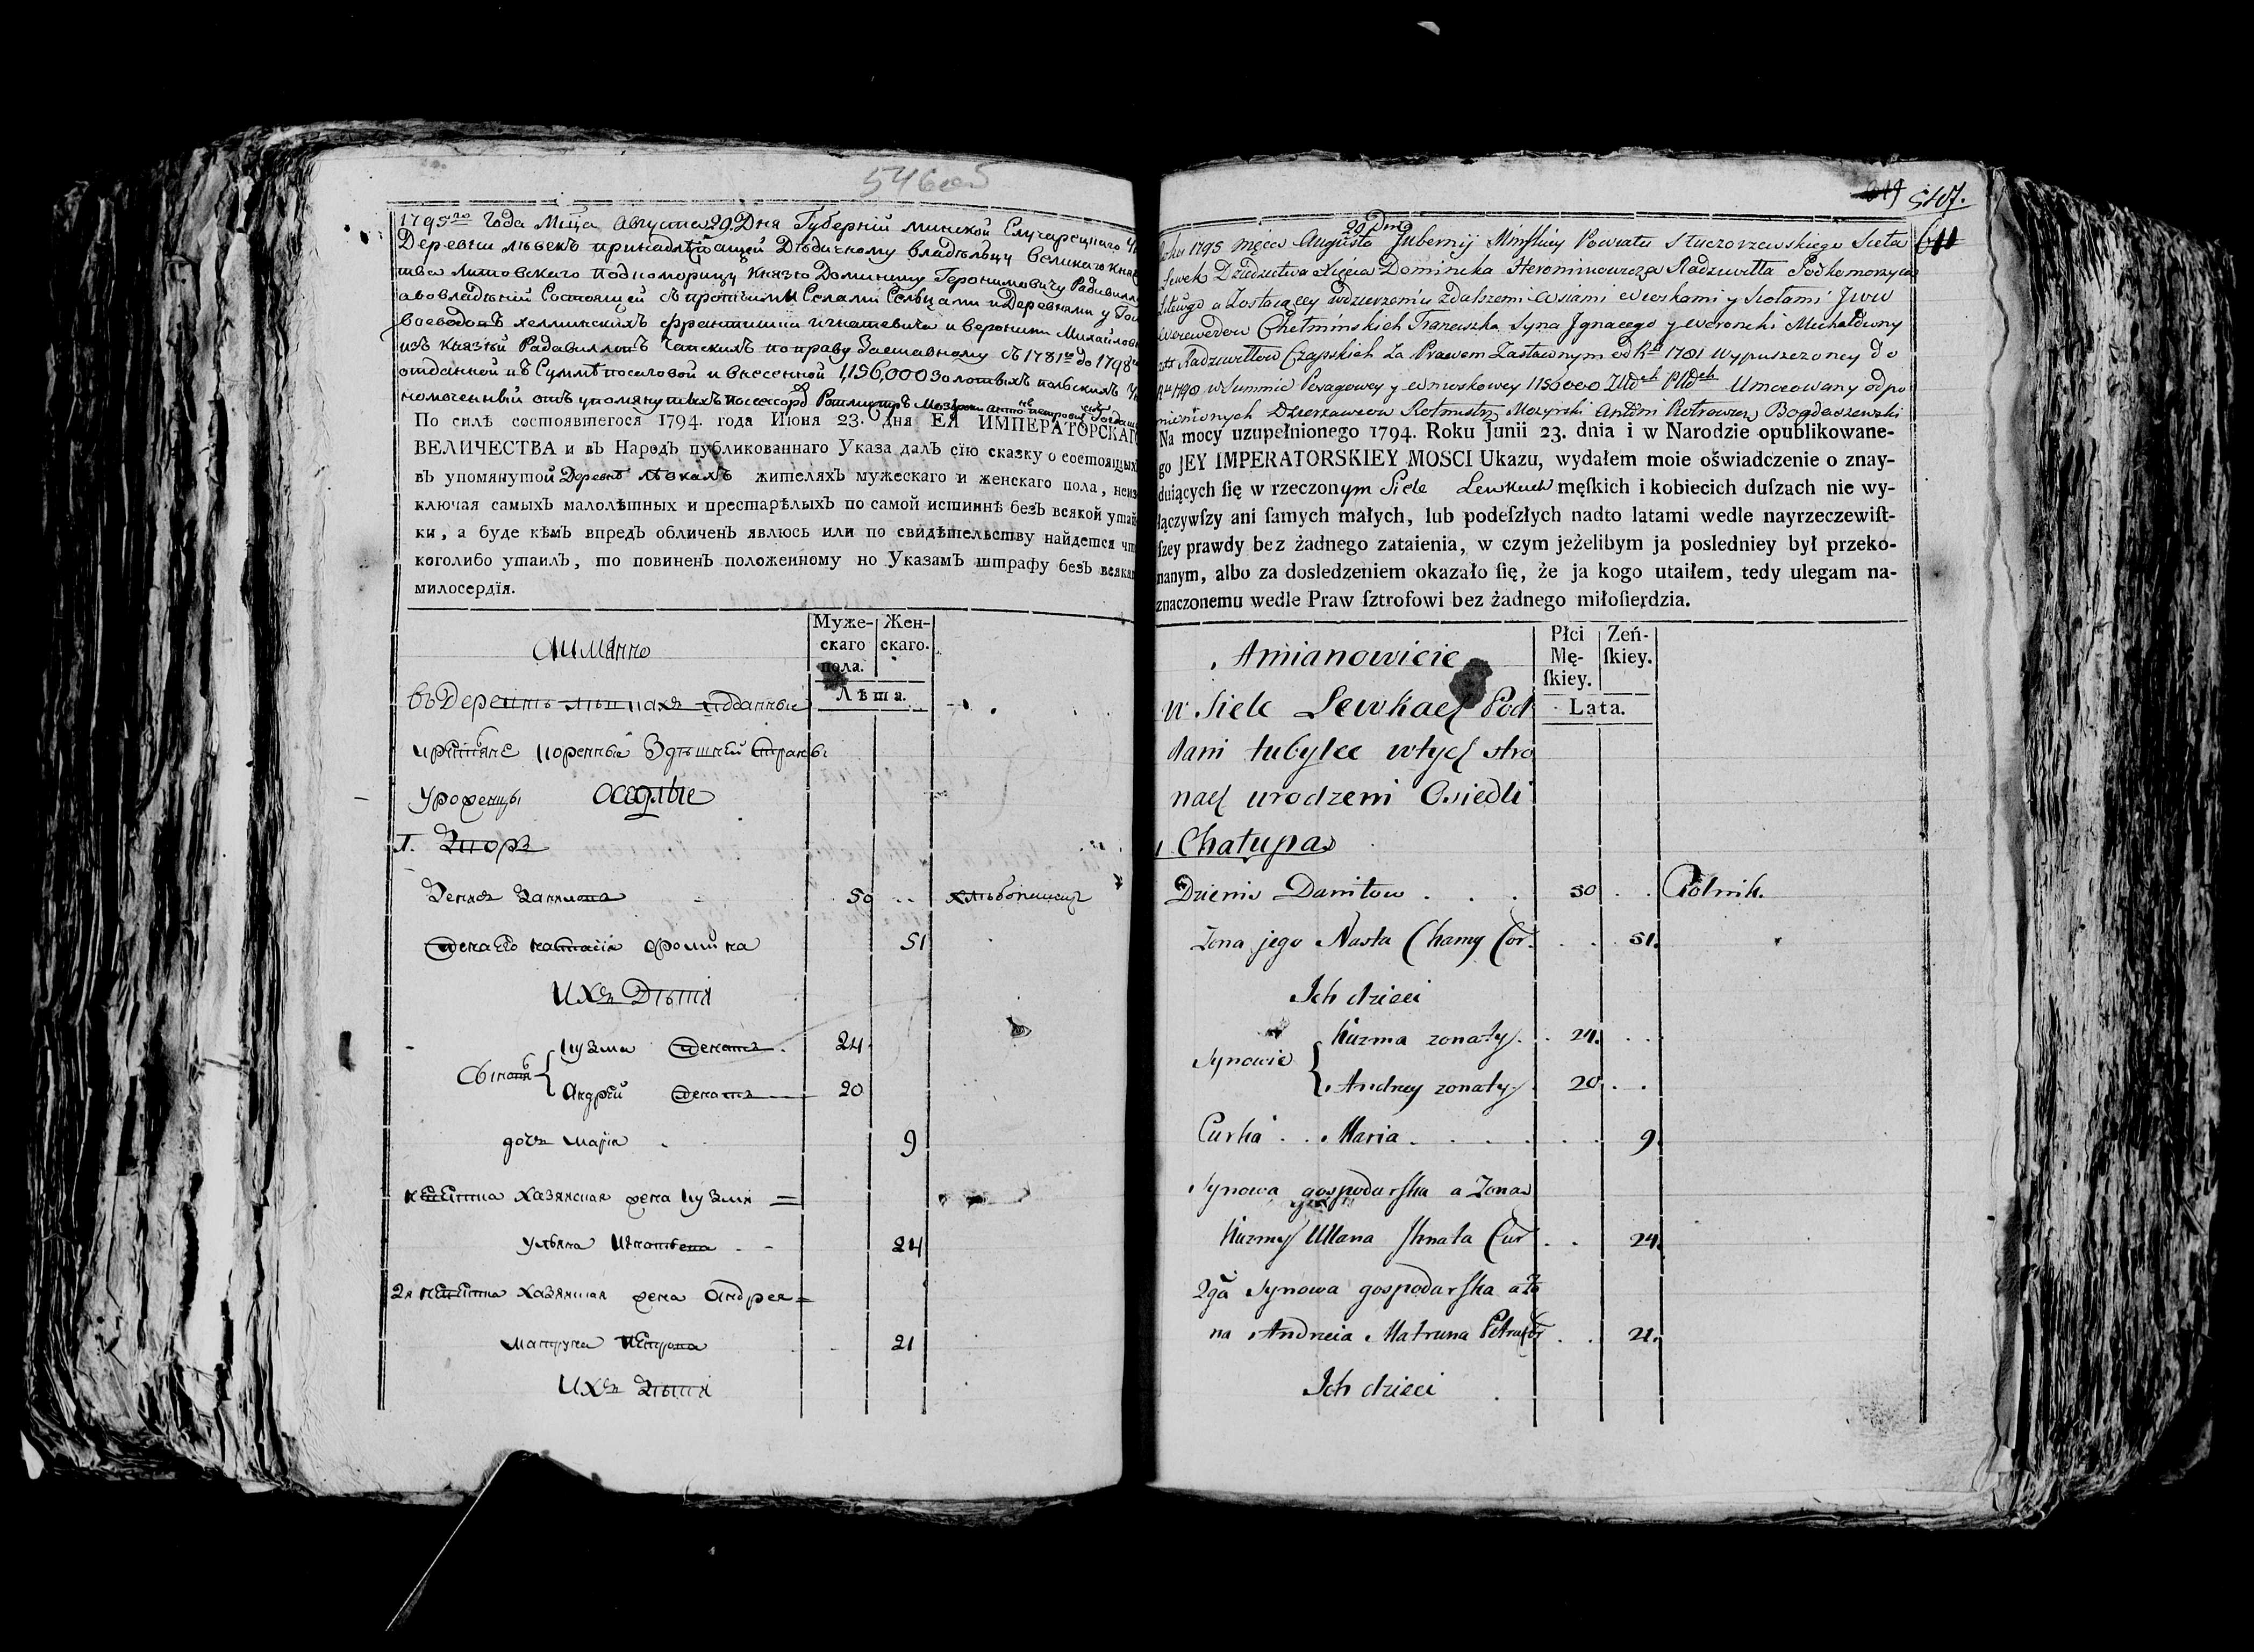 546об
1795го Года Мца Августа 29. Дня Губернiй минской Случарецкаго
Деревни лѣвекъ принадлѣжащей Дѣдичному владѣльцу Великаго Княж
тва Литовскаго Подкоморицу Князю Доминику Геронимовичу Радивиллу
а во владѣнiй Состоящей съ протчими Селами Сельцами и Деревнями у
воеводовъ хелминскихъ Франтишка игнатевича и вероники Михайловны
изъ Князѣй Радавилловъ Чапскихъ по праву Заставному съ 1781го до 1798
отданной въ Суммѣ посаговой и внесенной 1,156,000 золотыхъ польскихъ
номоченный отъ упомянутыхъ поссесоровъ Ротмистръ Мозырски антонъ петровичъ сынъ Богдаш
По силѣ состоявшегося 1794. года Июня 23. дня ЕЯ ИМПЕРАТОРСКАГО
ВЕЛИЧЕСТВА и въ Народъ публикованнаго Указа далъ сїю сказку о состоящихъ
въ упомянутой Деревнѣ лѣвкахъ жителяхъ мужескаго и женскаго пола, неиз
ключая самыхъ малолѣтныхъ и престарѣлыхъ по самой истиннѣ безъ всякой утай
ки, а буде кѣмъ впредъ обличенъ явлюсь или по свидѣтельству найдется что
коголибо утаилъ, то повиненъ положенному по Указамъ штрафу безъ всякаго
милосердїя.
Аимянно
Муже-скаго пола. Жен-скаго.
Лѣта.
въ Деревнѣ лѣвкахъ подданные
крестьяне коренные Здѣшней стороны
уроженцы осѣдлые
1. Дворъ
Денисъ Данилова 50 хлѣбопашецъ
жена его настасiя фомина 51
ихъ Дѣти
Сыновя { кузма женатъ. 24
Андрей женатъ 20
дочь марiя 9
невѣстка хазяиская жена кузмы
ульяна игнатьева 24
2я невѣстка хазяиская жена Андрея
матруна петрова 21
ихъ дѣти
547.
29 Dnia
Roku 1795 mięca Augusta Jubernij Mińskiey Powiatu Słuczorzewskiego Sieła
Lewek Dziedzictwa Xięcia Dominika Heronimowicza Radziwiłła Podkomorzyca
Litewgo a Zostaiącey wdzierżeniu zdalszemi Wsiami Wioskami y Siołami JWW
Woiewodow Chełmińskich Franciszka Syna Jgnacego y Weroniki Michałowny
Radziwiłłow Czapskich za Prawem Zastawnym od Rku 1781 wypuszczoney do
Rku 1798 w Summie Posagowey y wnioskowey 1156000 Złłch Plłch Umocowany odpo
mienionych Dzierżawcow Rotmistrz Mozyrski Antoni Piotrowicz Bogdaszewski
Na mocy uzupełnionego 1794. Roku Junii 23. dnia i w Narodzie opublikowane-
go JEY IMPERATORSKIEY MOSCI Ukazu, wydałem moie oświadczenie o znay-
duiących ſię w rzeczonym Siele Lewkach męſkich i kobiecich duſzach nie wy-
łączywſzy ani ſamych małych, lub podeſzłych nadto latami wedle nayrzeczewiſt-
ſzey prawdy bez żadnego zataienia, w czym jeżelibym ja posledniey był przeko-
nanym, albo za dosledzeniem okazało ſię, że ja kogo utaiłem, tedy ulegam na-
znaczonemu wedle Praw ſztrofowi bez żadnego miłoſierdzia.
Amianowicie
Płci Mę-ſkiey. Zeń-ſkiey.
Lata.
w Siele Lewkach Pod
dani tubylce wtych stro
nach urodzeni Osiedli
1 Chałupa
Dzienis Daniłow . . . 50 . . Rolnik.
Zona jego Nasta Chamy Cor. . . 51.
Ich dzieci
Synowie { Kuzma zonaty. . 24. . .
Andrey zonaty. 20. . .
Curka . . . Maria . . . . . . 9.
Synowa gospodarſka a Zona
Kuzmy Ullana Jhnata Cur . . 24.
2ga Synowa gospodarſka a Zo
na Andrzeia Matruna Petra Cor . . 21.
Ich dzieci